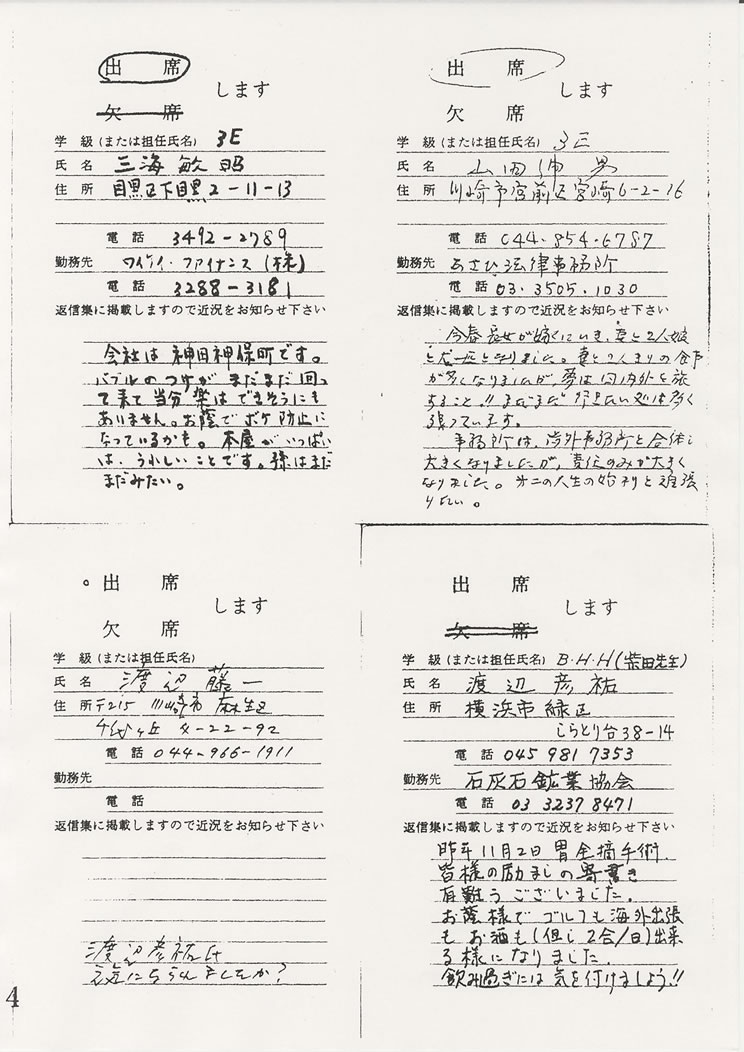 出 席
します
欠 席
学 級 (または担任氏名) 3E
氏 名 三海敏昭
住 所 目黒区下目黒2-11-13
電 話 3492-2789
勤務先 ワイケイ・ファイナンス(株)
電 話 3288-3181
返信集に掲載しますので近況をお知らせ下さい
会社は神田神保町です。
バブルのつけがまだまだ回っ
て来て当分楽はできそうにも
ありません。お蔭でボケ防止に
なっているかも。本屋がいっぱい
は、うれしいことです。孫はまだ
まだみたい。
出 席
します
欠 席
学 級 (または担任氏名) 3E
氏 名 山田 男
住 所 川崎市宮前区宮崎6-2-16
電 話 044・854・6787
勤務先 あさひ法律事務所
電 話 03・3505・1030
返信集に掲載しますので近況をお知らせ下さい
今春長女が嫁にいき、妻と2人娘
と犬一匹となりました。妻と2人きりの食事
が多くなりましたが、夢は国内外を旅
すること!!まだまだ行きたい処は多く
残っています。
事務所は、渉外事務所と合体し
大きくなりましたが、責任のみが大きく
なりました。第二の人生の始まりと頑張
りたい。
出 席
します
欠 席
学 級 (または担任氏名)
氏 名 渡辺藤一
住 所 〒215 川崎市麻生区
千代ヶ丘 4-22-92
電 話 044-966-1911
勤務先
電 話
返信集に掲載しますので近況をお知らせ下さい
渡辺彦祐氏
元気になられましたか?
出 席
します
欠 席
学 級 (または担任氏名) B・H・H(柴田先生)
氏 名 渡辺彦祐
住 所 横浜市緑区
しらとり台38-14
電 話 045 981 7353
勤務先 石灰石鉱業協会
電 話 03 3237 8471
返信集に掲載しますので近況をお知らせ下さい
昨年11月2日胃全摘手術.
皆様の励ましの寄書き
有難うございました.
お蔭様でゴルフも海外出張
もお酒も(但し2合/日)出来
る様になりました.
飲み過ぎには気を付けましょう!!
4